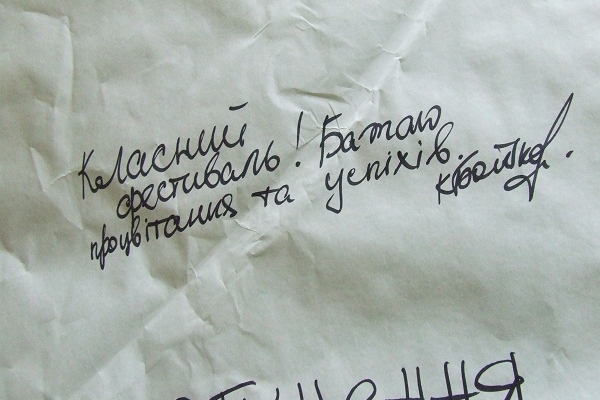 Класний
фестиваль! Бажаю
процвітання та успіхів.